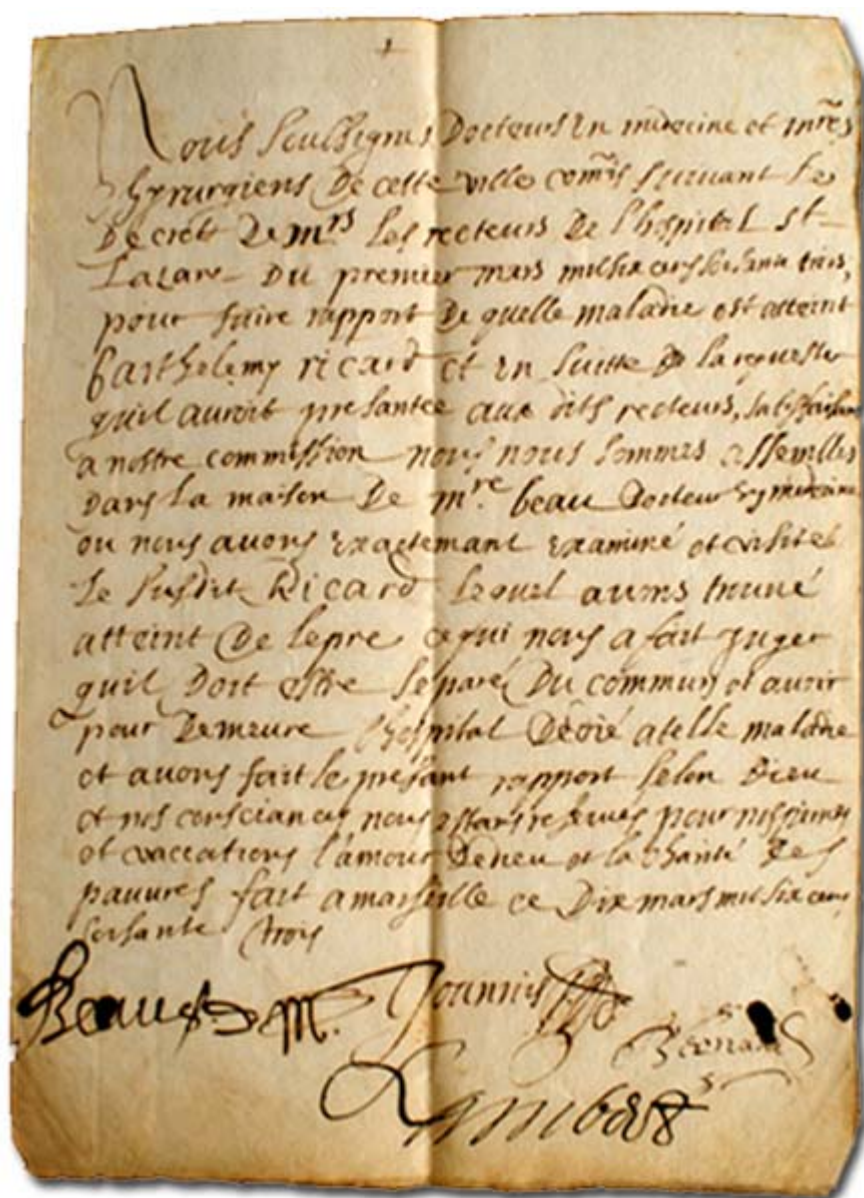 Nous soubsignes Docteurs en medecine et mres
chyrurgiens de cette ville comis suivant le
decrett de mrs les recteurs de l'hospital st
Lazare du premier mars mil six cens soisante trois,
pour faire rapport de quelle maladie est atteint
barthelemy ricard et en suitte de la requeste
quil auroit presantée aux dits recteurs, satisfaisant
a nostre commission nous nous sommes assemblés
dans la maison de mre beau docteur en medecine
ou nous avons exactemant examiné et visité
le susdit Ricard lequel avons trouvé
atteint de lepre ce qui nous a fait juger
quil doit estre separé du commun et avoir
pour demeure l'hospital dedié a telle maladie
et avons fait le presant rapport selon dieu
et nos consciances nous estans reservés pour nos
et vaccations l'amour de dieu et la charité des
pauvres fait a marseille ce dix mars mil six cens
soisante trois
Beau D M. Joannis
Bernard
Lambert